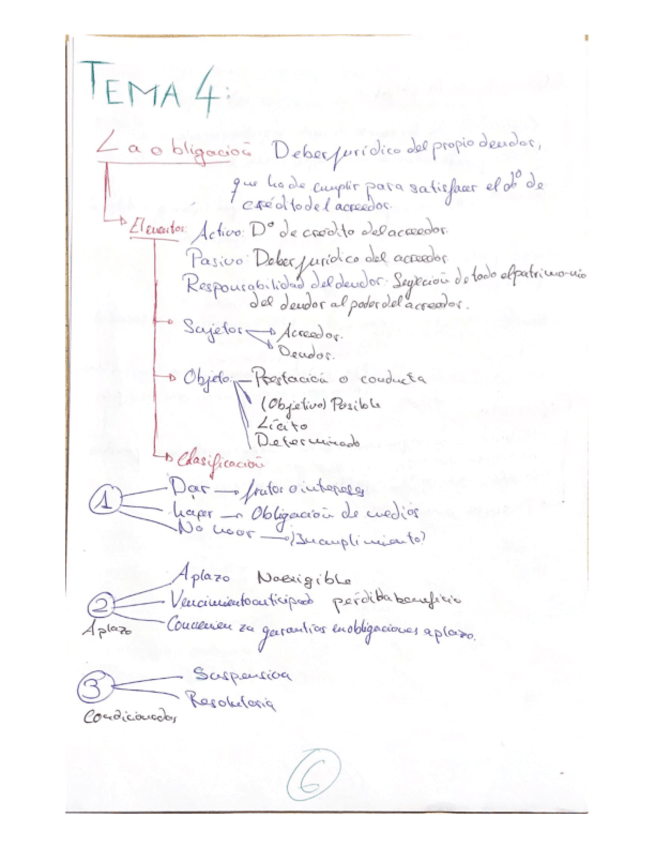 TEMA 4:
La obligación Deber jurídico del propio deudor,
que ha de cumplir para satisfacer el dº de
crédito del acreedor.
Elementos: Activo: Dº de crédito del acreedor.
Pasivo: Deber jurídico del acreedor
Responsabilidad del deudor: Sujeción de todo el patrimonio
del deudor al poder del acreedor.
Sujetos Acreedor.
Deudor.
Objeto Prestación o conducta
(Objetivo) Posible
Lícito
Determinado
Clasificación
1 Dar → frutos o intereses
hacer → Obligación de medios
No hacer → ¿Incumplimiento?
A plazo No exigible
2 Vencimiento anticipado pérdida beneficio
A plazo garantías en obligaciones a plazo.
3 Suspensiva
Resolutoria
Condicionadas
6